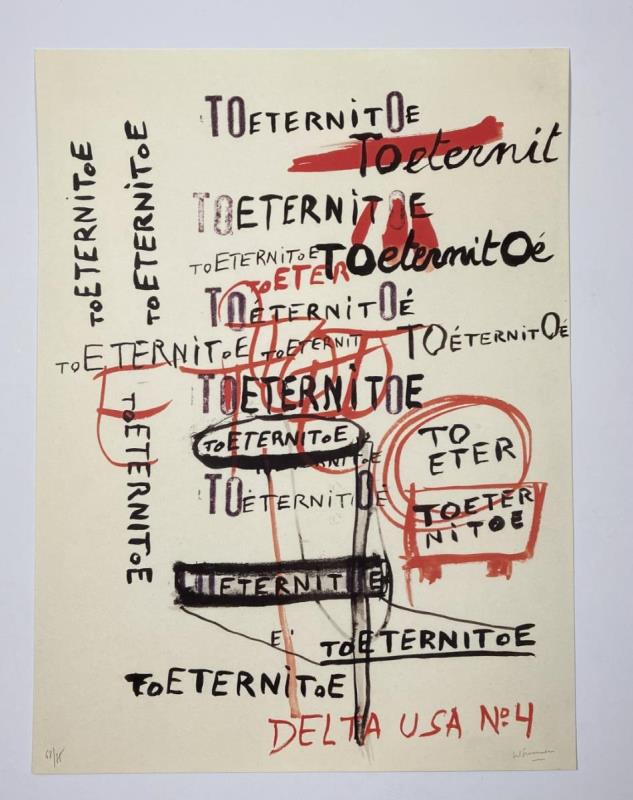 TOETERNiTOE
TOeternit
TOETERNiTOE
TOETERNiTOE
TOeternitOé
TOETER
TOÉTERNiTOÉ
TOETERNiTOE
TOETERNIT
TOÉTERNiTOÉ
TOETERNiTOE
TOETERNiTOE
TO
ETER
TOÉTERNiTOÉ
TOETER
NiTOE
TOETERNiTOE
TOETERNiTOE
TOETERNiTOE
ETERNIT E
E'
TOETERNITOE
TOETERNiTOE
DELTA USA Nº4